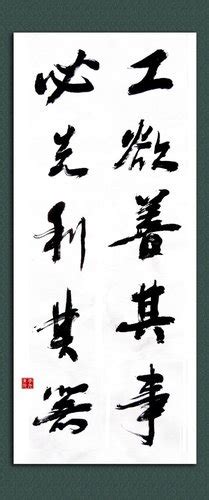 工欲善其事
必先利其器